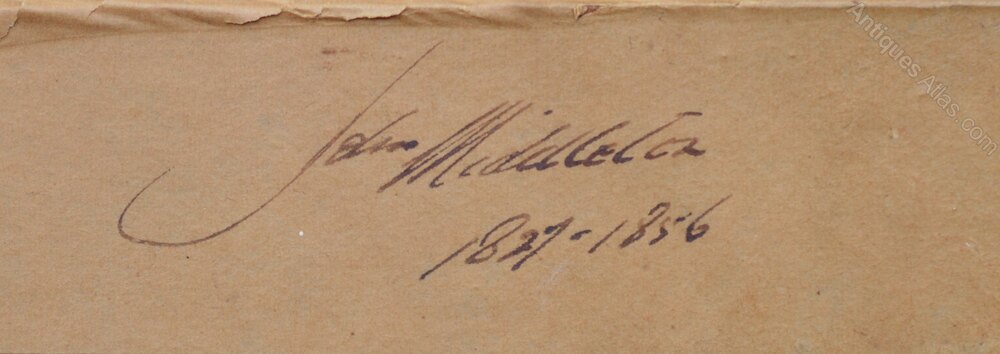 John Middleton
1827-1856
Antiques Atlas.com